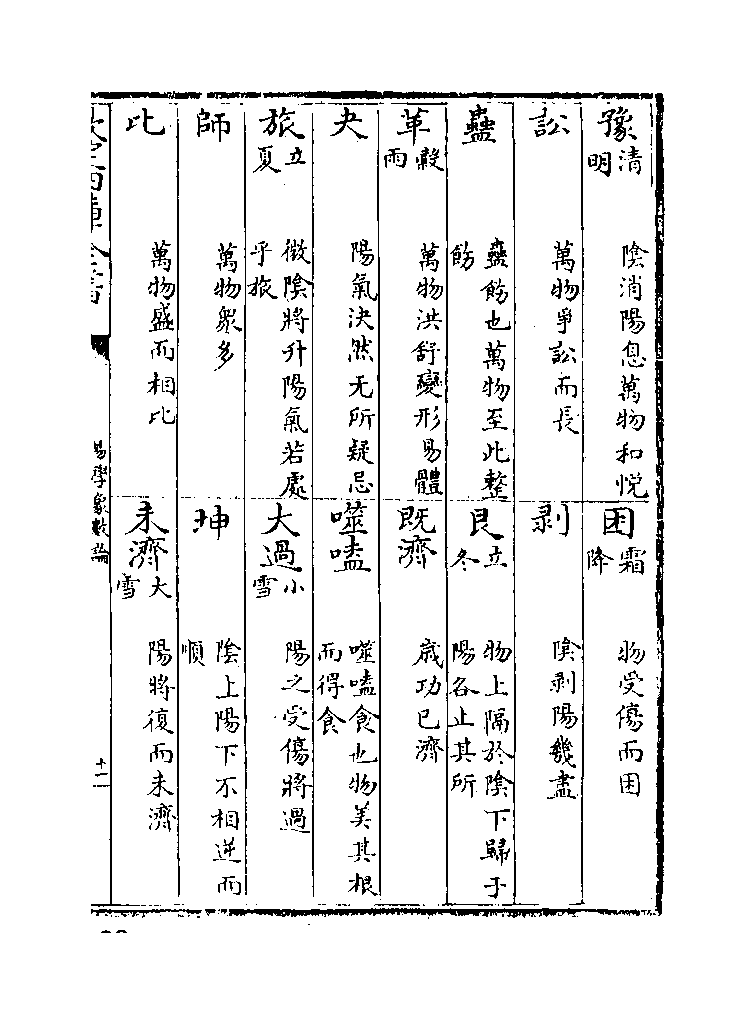 豫清明　陰消陽息萬物和悅
困霜降　物受傷而困
訟　萬物爭訟而長
剥　陰剥陽幾盡
蠱　蠱飭也萬物至此整飭
艮立冬　物上隔於陰下歸于陽各止其所
革穀雨　萬物洪舒變形易體
既濟　歲功已濟
夬　陽氣決然无所疑忌
噬嗑　噬嗑食也物美其根而得食
旅立夏　微陰將升陽氣若處乎旅
大過小雪　陽之受傷將過
師　萬物衆多
坤　陰上陽下不相逆而順
比　萬物盛而相比
未濟大雪　陽將復而未濟
欽定四庫全書
易學象數論
十一